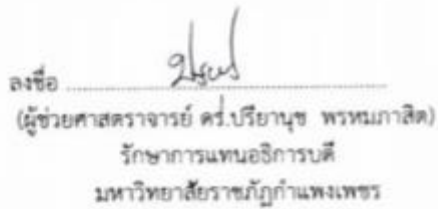 ลงชื่อ ........................................................
(ผู้ช่วยศาสตราจารย์ ดร.ปรียานุช พรหมภาสิต)
รักษาการแทนอธิการบดี
มหาวิทยาลัยราชภัฏกำแพงเพชร